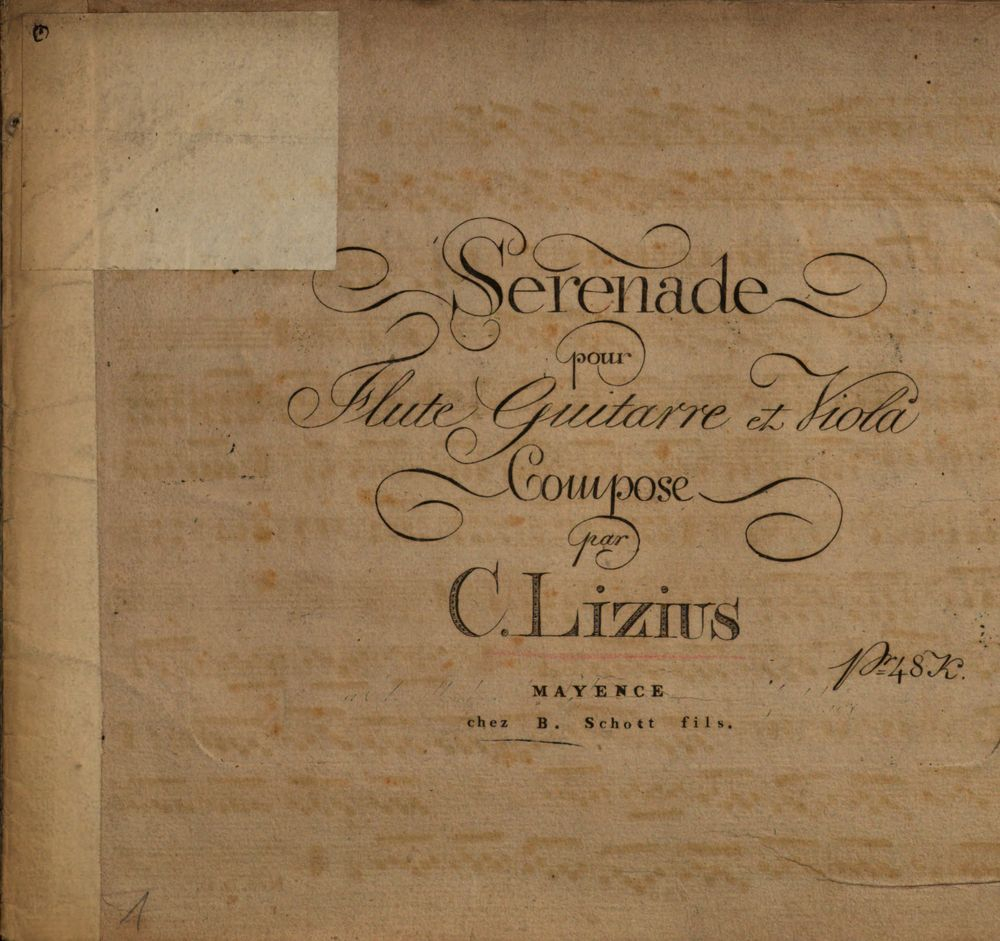 Serenade
pour
Flute Guitarre et Viola
Compose
par
C. Lizius
Pr. 48 K.
MAYENCE
chez B. Schott fils.
1